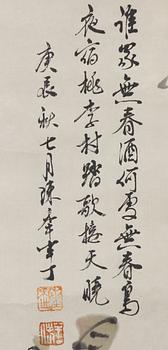 誰家無春酒何處無春鳥
夜宿桃李村踏歌接天曉
庚辰秋七月陳半丁